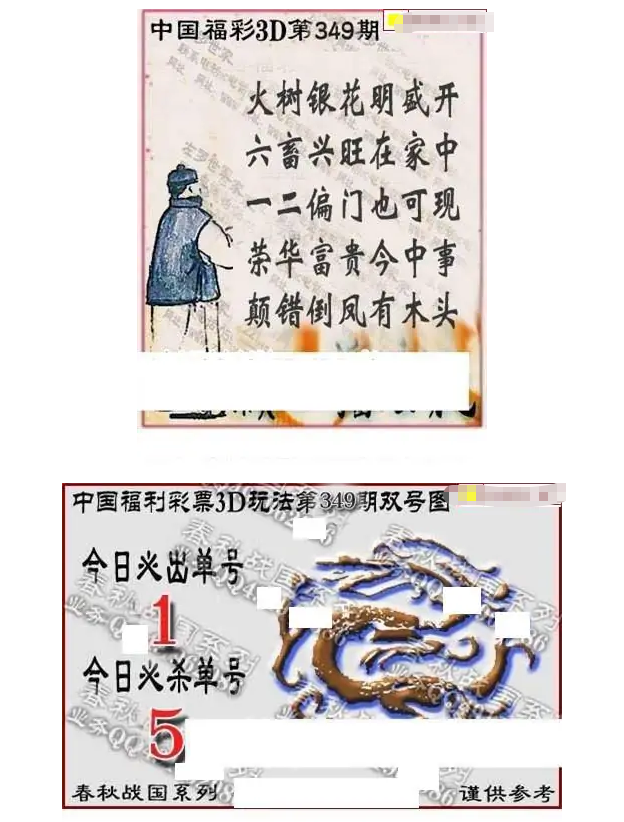 中国福彩3D第349期
火树银花明盛开
六畜兴旺在家中
一二偏门也可现
荣华富贵今中事
颠错倒凤有木头
中国福利彩票3D玩法第349期双号图
今日必出单号
1
今日必杀单号
5
春秋战国系列
谨供参考